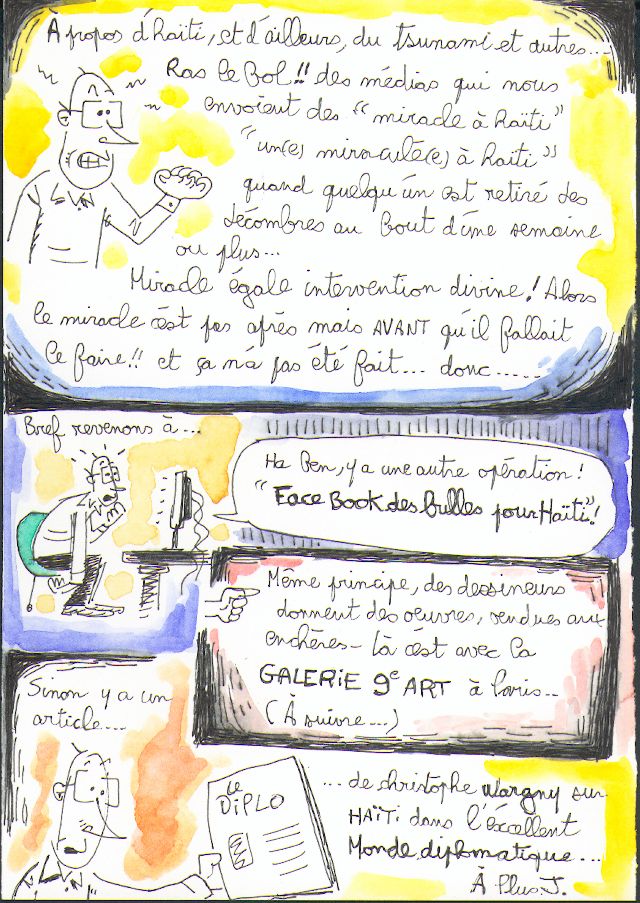 À propos d'haïti, et d'ailleurs, du tsunami et autres...
Ras le Bol!! des médias qui nous
envoient des "miracle à haïti"
"un(e) miraculé(e) à haïti"
quand quelqu'un est retiré des
décombres au bout d'une semaine
ou plus...
Miracle égale intervention divine! Alors
le miracle c'est pas après mais AVANT qu'il fallait
le faire!! et ça n'a pas été fait... donc......
Bref revenons à...
Ha Ben, y a une autre opération!
"FaceBook des bulles pour Haïti"!
Même principe, des dessineurs
donnent des oeuvres, vendues aux
enchères - là c'est avec la
GALERIE 9e ART à Paris..
(À suivre...)
Sinon y a un
article...
Le
DiPLO
... de christophe Wargny sur
HAÏTi dans l'excellent
Monde diplomatique...
À Plus. J.